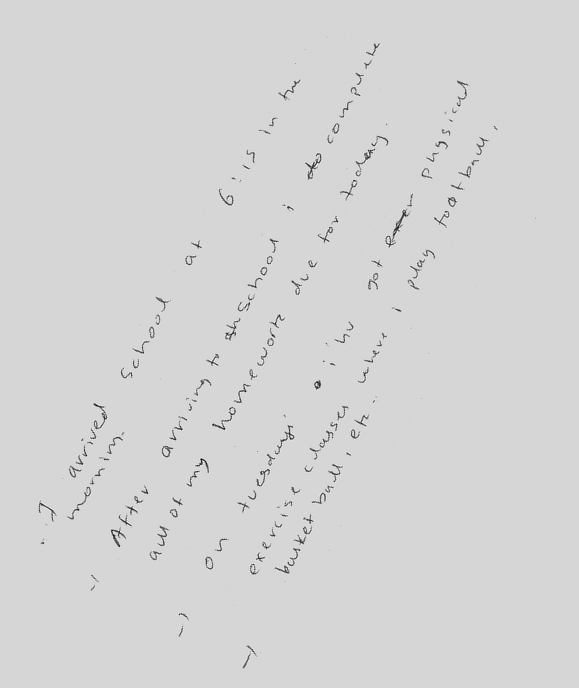 → I arrived school at 6:15 in the
morning.
→ After arriving to school i do complete
all of my homework due for today.
→ on tuesdays i hv got physical
exercise classes where i play football,
basket ball, etc.
→